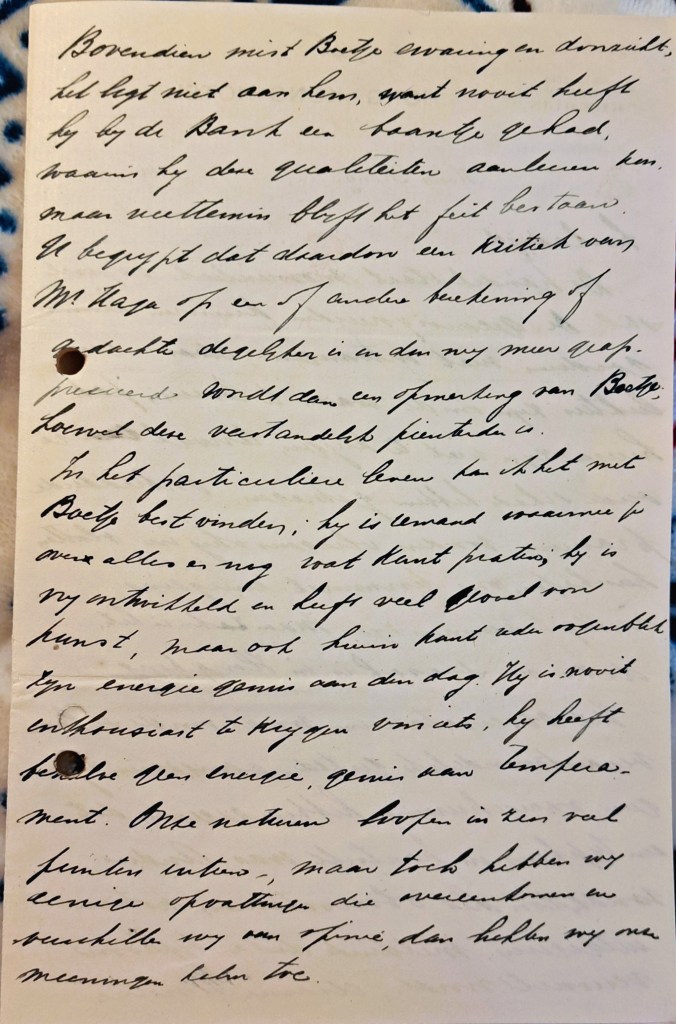 Bovendien mist Boetje ervaring en doorzicht,
het ligt niet aan hem, want nooit heeft
hy by de Bank een baantje gehad,
waarin hy deze qualiteiten aanleeren kon.
maar niettemin blyft het feit bestaan.
U begrypt dat daardoor een kritiek van
Mr. Haga op een of andere berekening of
gedachte degelyker is en door my meer geap-
precieerd wordt dan een opmerking van Boetje,
hoewel deze verstandelyk pienterder is.
In het particuliere leven kan ik het met
Boetje best vinden; hy is iemand waarmee je
over alles en nog wat kunt praten; hy is
vry ontwikkeld en heeft veel gevoel voor
kunst, maar ook hierin komt ieder oogenblik
zyn energie gemis aan den dag. Hy is nooit
enthousiast te krygen voor iets, hy heeft
behalve geen energie, gemis aan tempera-
ment. Onze naturen loopen in zeer veel
punten uiteen, maar toch hebben wy
eenige opvattingen die overeenkomen en
verschillen wy van opinie, dan hebben wy onze
meeningen toe.